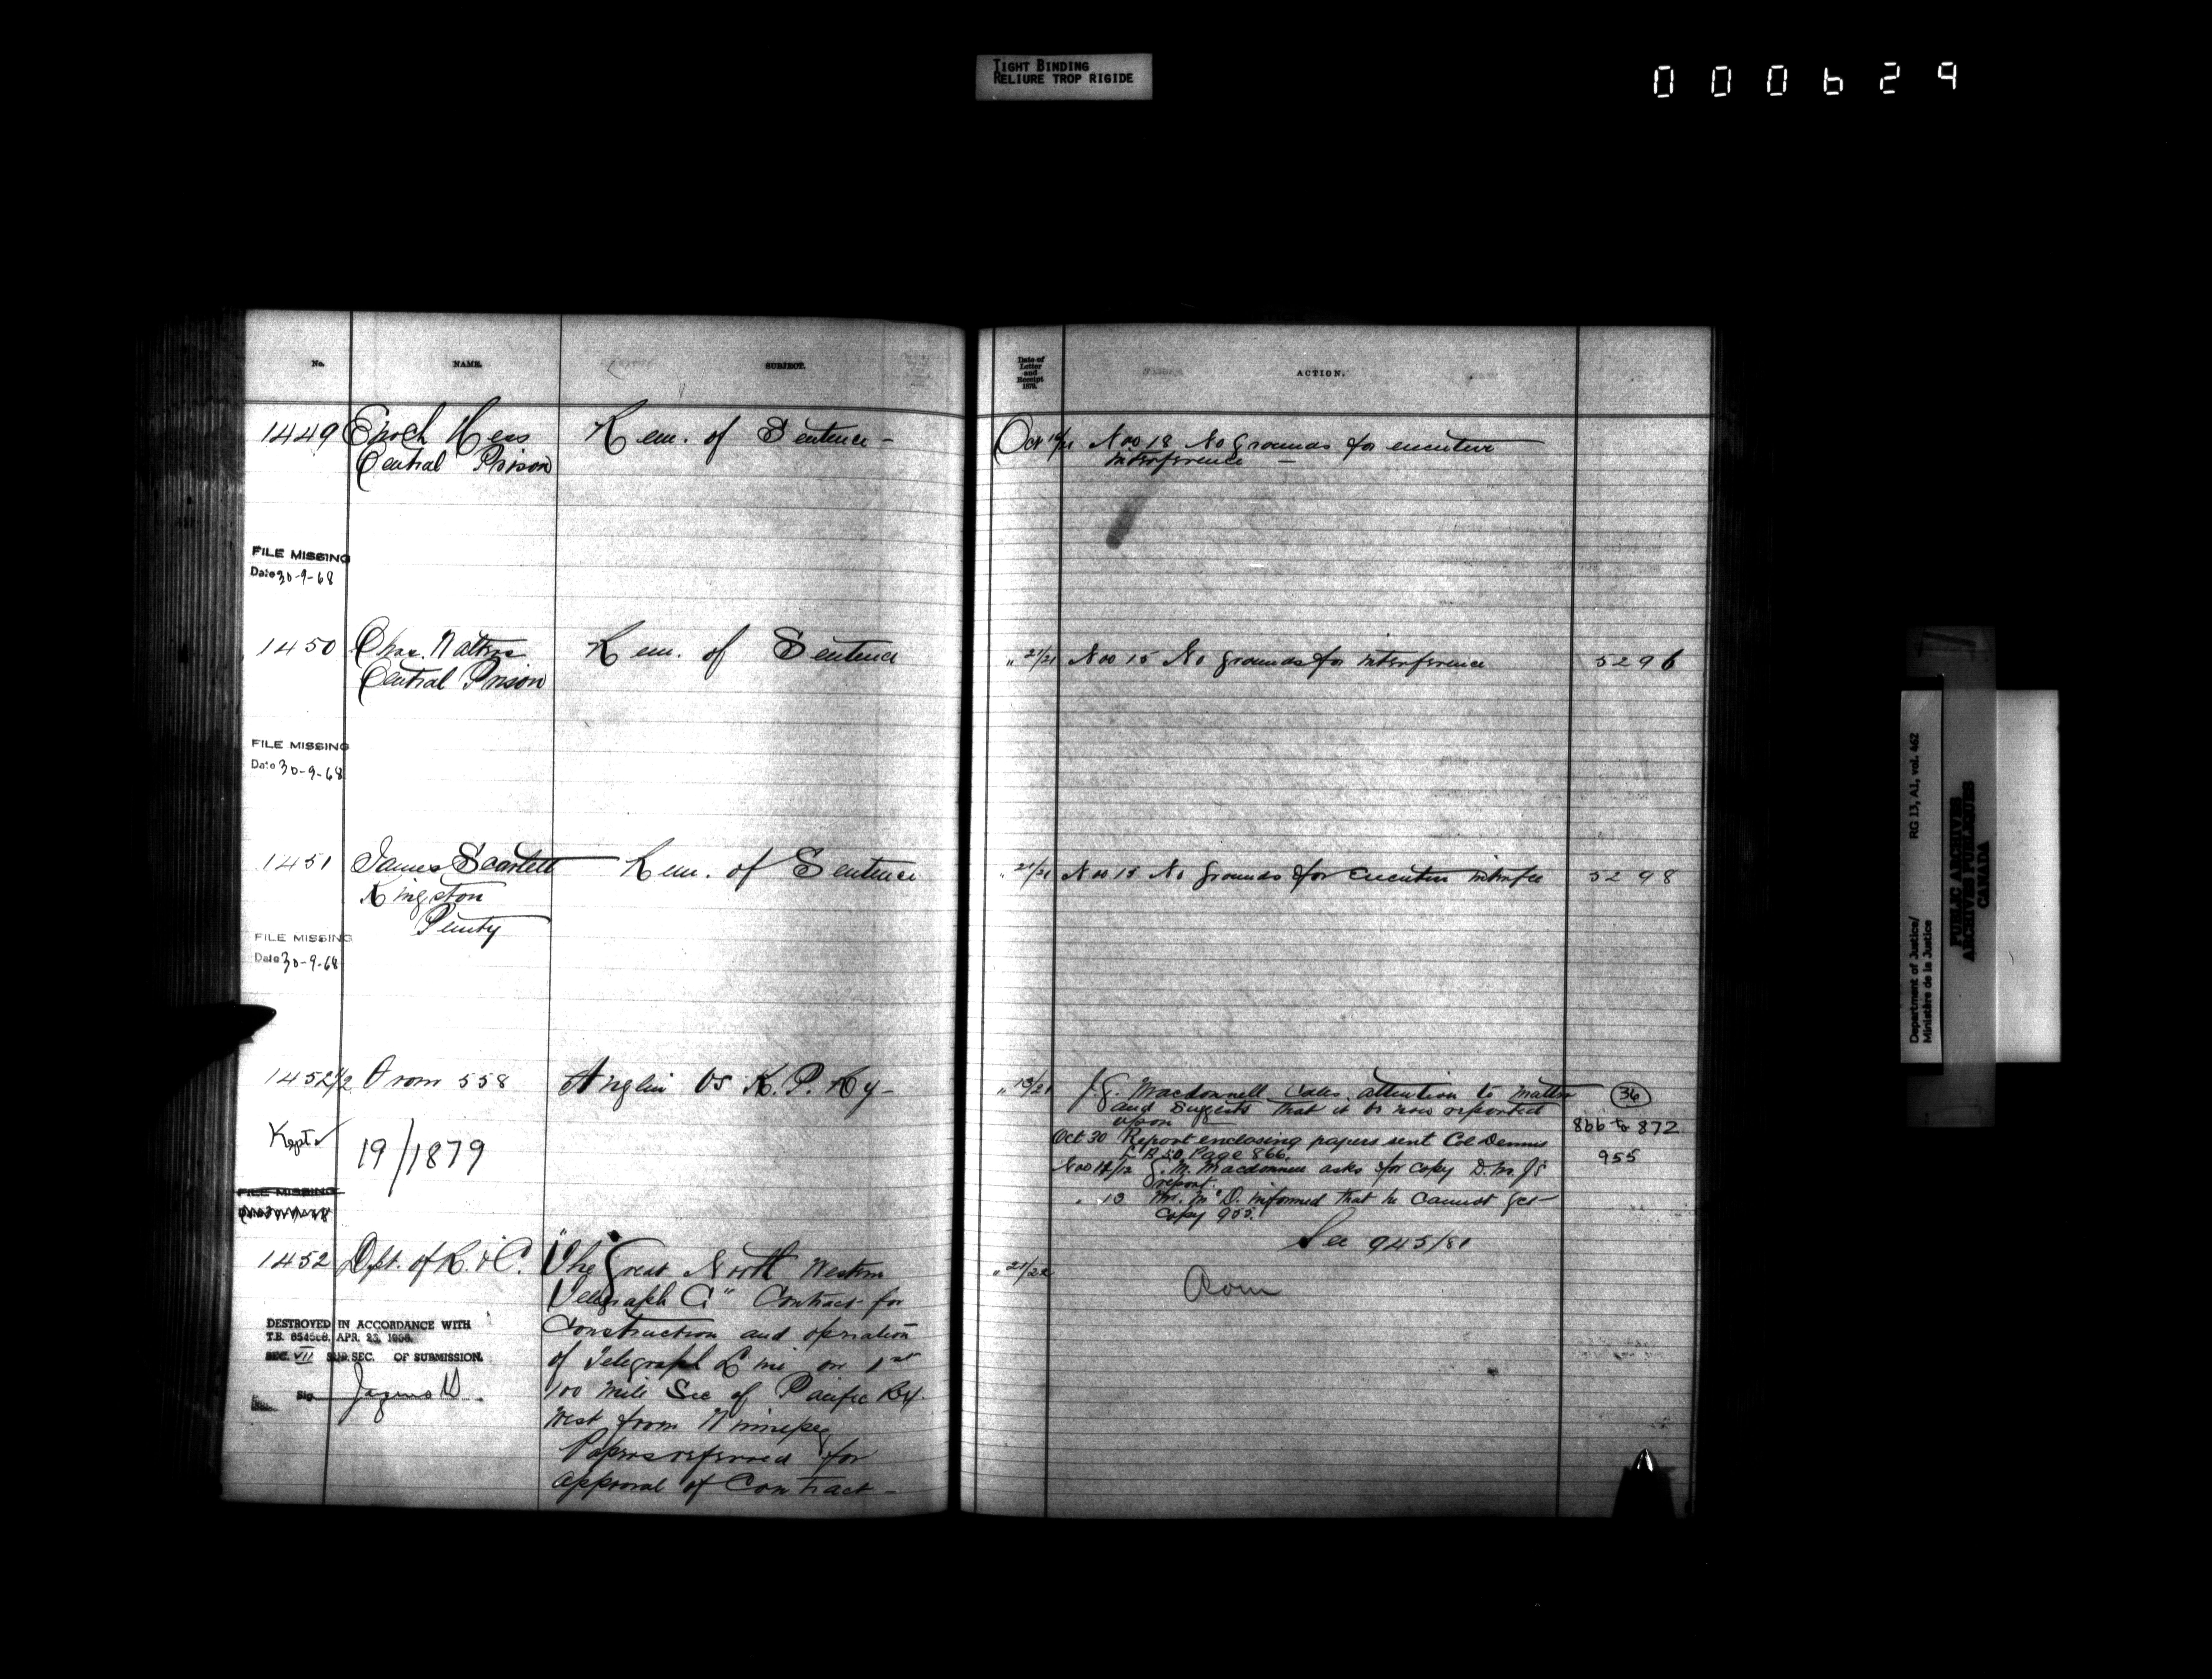 TIGHT BINDING
RELIURE TROP RIGIDE
000629
No. NAME. SUBJECT.
Date of Letter and Receipt 1879. ACTION.
1449 Enoch Hess Rem. of Sentence -
Central Prison
Oct 19/21 Nov 18 No grounds for executive
interference -
FILE MISSING
Date 30-9-68
1450 Chas. Rem. of Sentence
Central Prison
" 21/21 Nov 15 No grounds for interference 5296
FILE MISSING
Date 30-9-68
1451 James Scarlett Rem. of Sentence
Kingston
Penity
" 21/21 Nov 15 No grounds for Executive interfce 5298
FILE MISSING
Date 30-9-68
1452 1/2 From 558 Anglin vs K. P. Ry -
Kept ✓
19/1879
FILE MISSING
" 19/21 J. G. Macdonnell calls attention to matter 36
and suggests that it be now reported
upon
866 to 872
Oct 30 Report enclosing papers sent Col Dennis
L B 50, Page 866. 955
Nov 12/12 G. M. Macdonnell asks for copy D. M. J's
report.
" 13 Mr. McD. informed that he cannot get
copy 955.
See 945/81
1452 Dept. of R. & C. "The Great North Western
Telegraph Co" Contract for
Construction and operation
of Telegraph Line on 1st
100 mile Sec of Pacific Ry.
West from Winnipeg
Papers referred for
approval of Contract -
" 21/22
DESTROYED IN ACCORDANCE WITH
T.B. 654568, APR. 23
SEC. VII SUB. SEC. OF SUBMISSION.
Sig.
Department of Justice/ RG 13, A1, vol. 462
Ministère de la Justice
PUBLIC ARCHIVES
ARCHIVES PUBLIQUES
CANADA